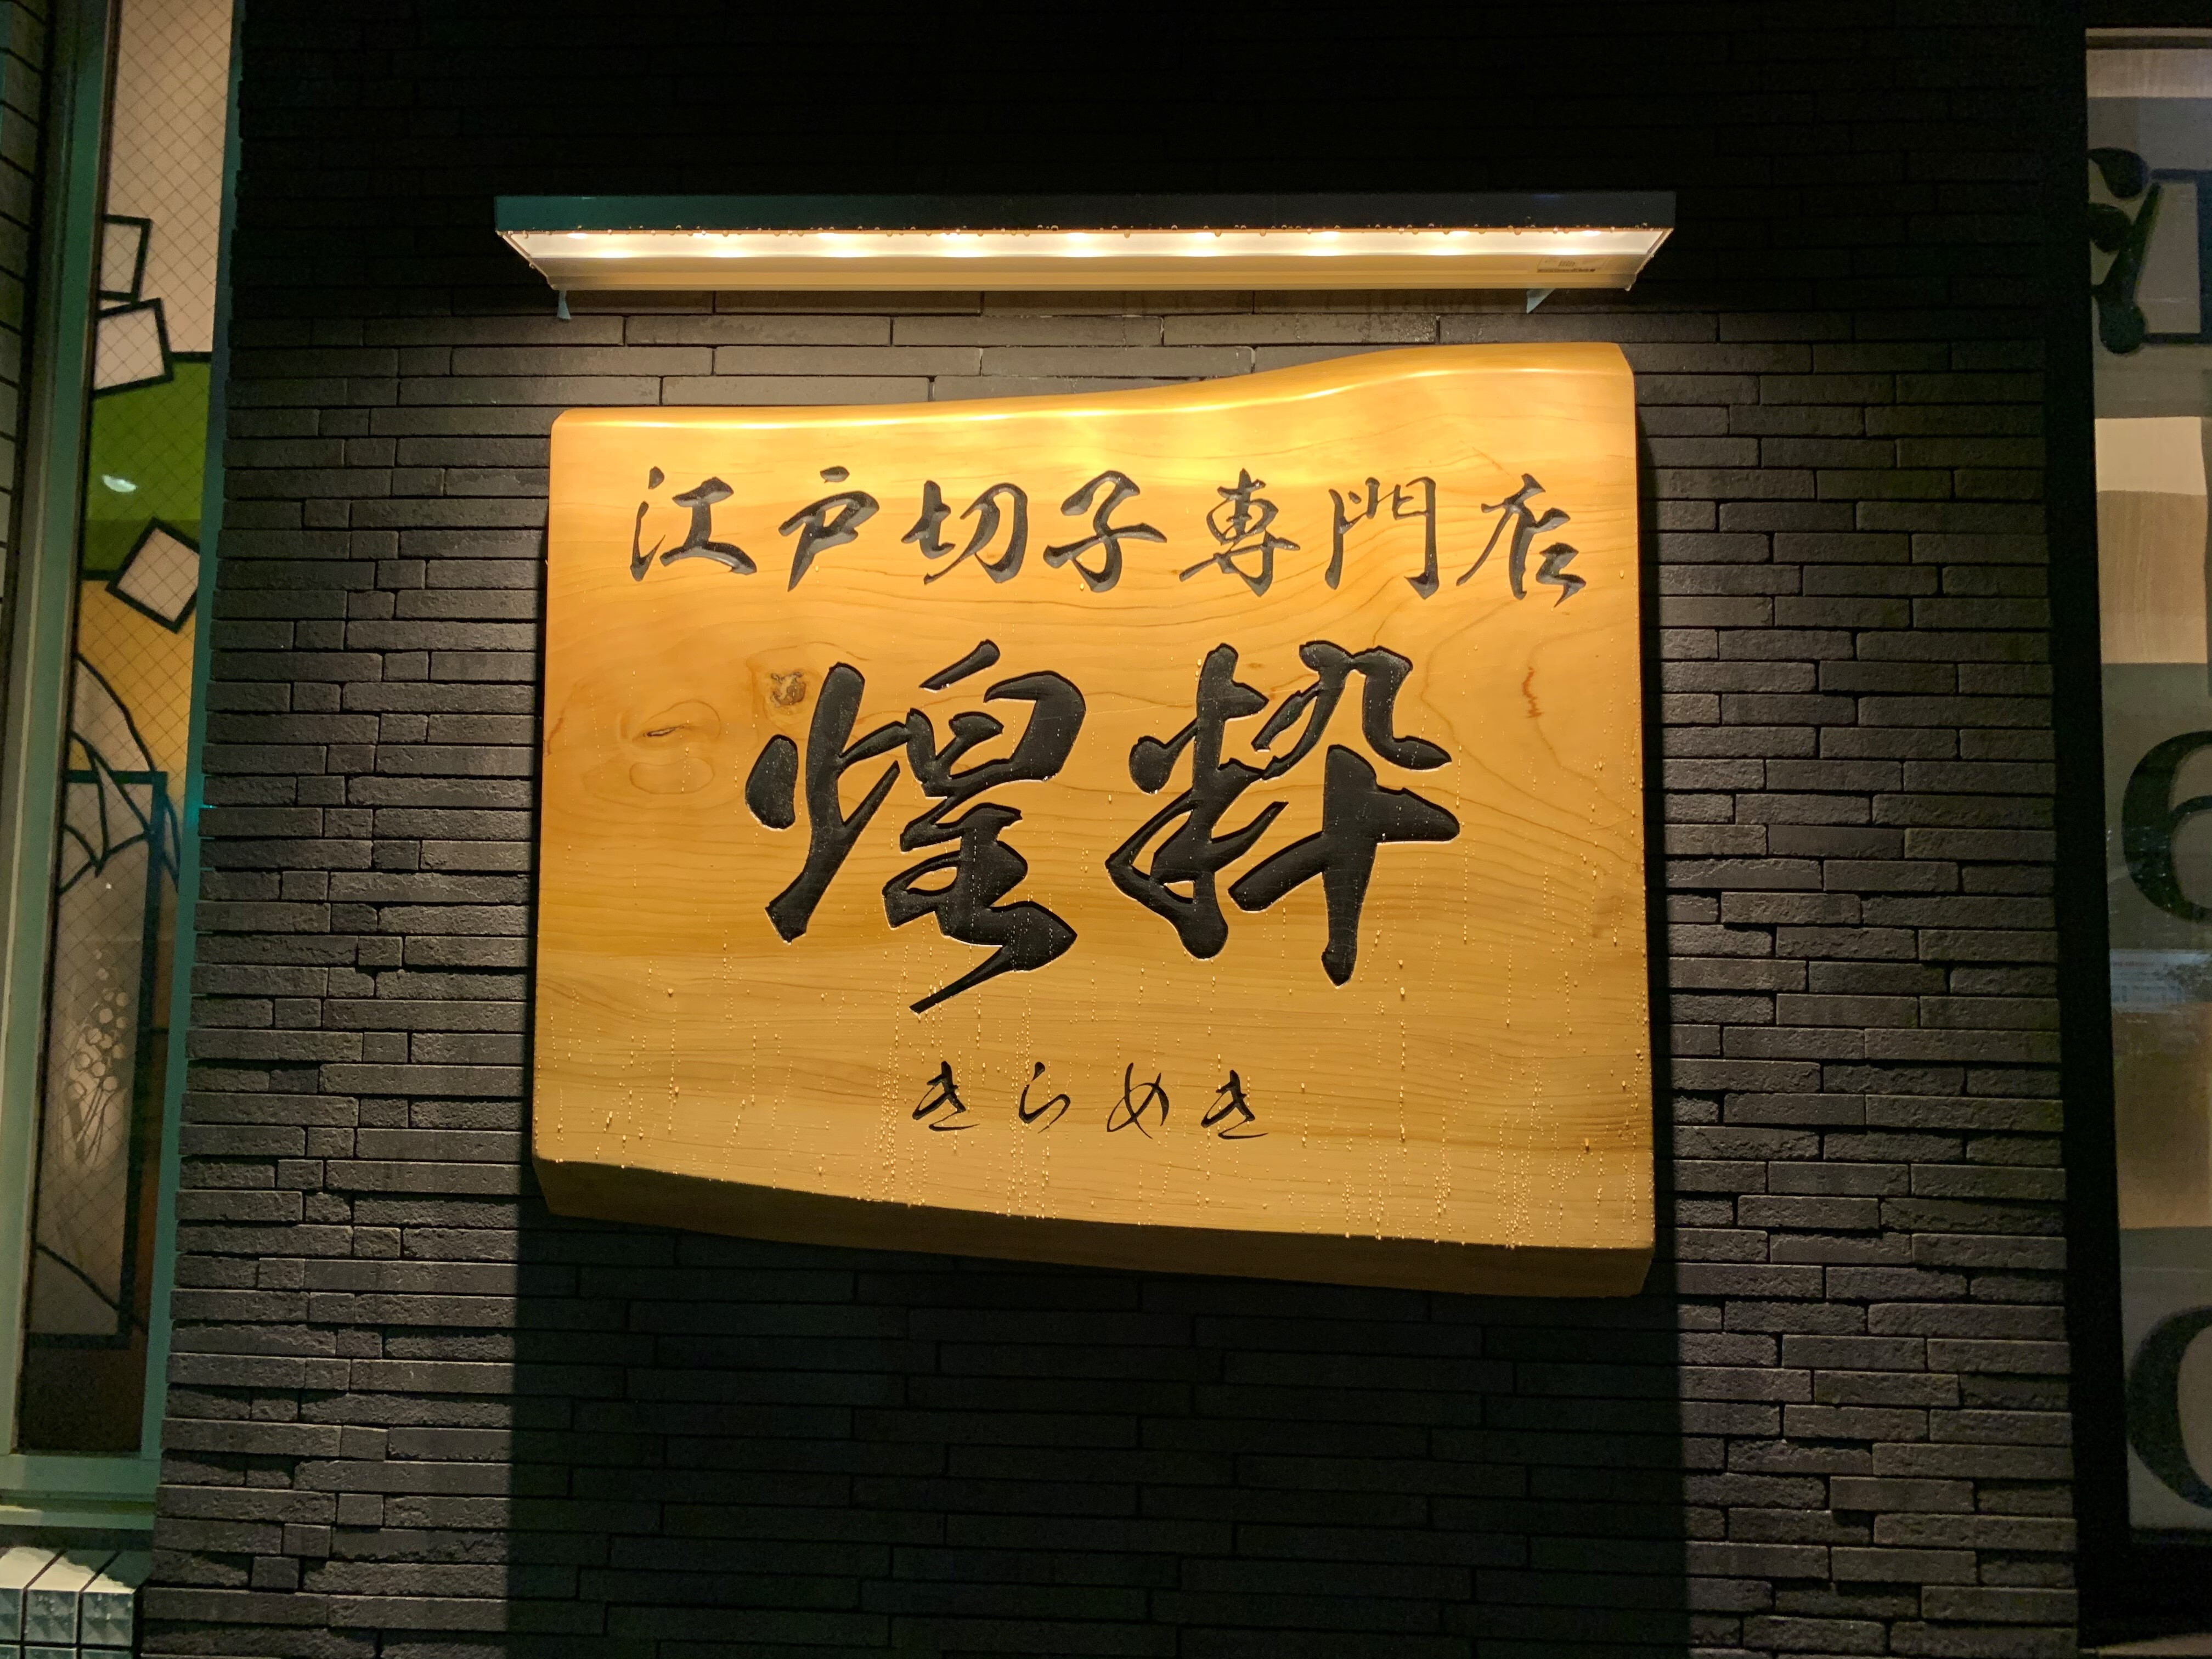 江戸切子専門店
煌粋
きらめき